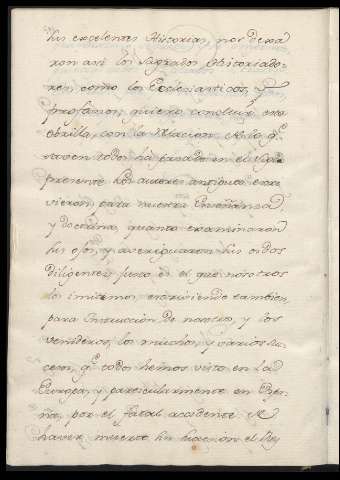 sus excelentes Historias, nos dexa
ron asi los Sagrados Historiado=
res, como los Ecclesiasticos, y
profanos, quiero concluir esta
obrilla, con la Relacion de lo q.e
saven todos há pasado en el Siglo
presente. Los autores antiguos escri
vieron, para nuestra Enseñanza
y doctrina, quanto examinaron
sus ojos, y averiguaron sus oidos
diligentes; justo es el que nosotros
los imitemos, escriviendo tambien,
para Instruccion de nosotros, y los
venideros, los muchos, y varios su
cesos, q.e todos hemos visto en la
Europa, y particularmente en Espa
ña, por el fatal accidente de
haver muerto sin sucesion el Rey